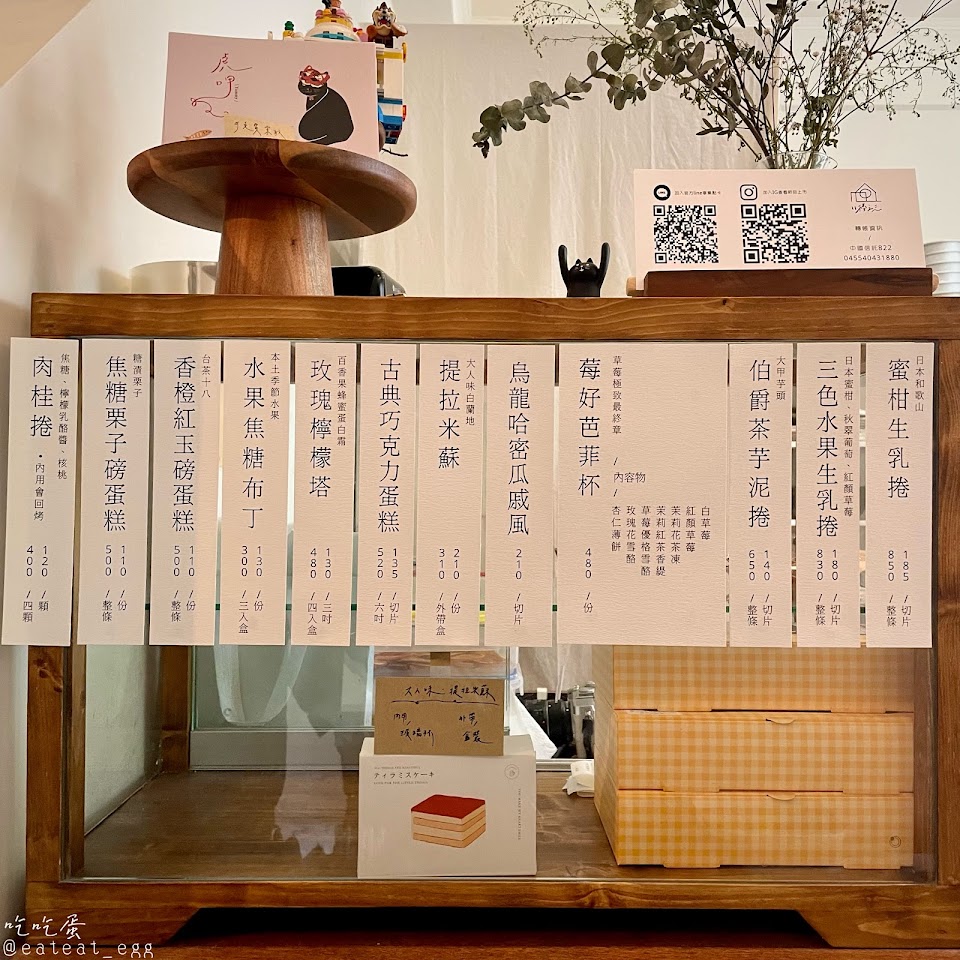 虎呷
加入官方line會員點卡
加入IG查看新品上市
轉帳資訊
/
中國信託822
045540431880
日本和歌山
蜜柑生乳捲
185/切片
850/整條
日本蜜柑、秋翠葡萄、紅顏草莓
三色水果生乳捲
180/切片
830/整條
大甲芋頭
伯爵茶芋泥捲
140/切片
650/整條
草莓極致最終章
/
內容物
/
白草莓
紅顏草莓
茉莉花茶凍
茉莉紅茶香緹
草莓優格雪酪
玫瑰花雪酪
杏仁薄餅
莓好芭菲杯
480/份
烏龍哈密瓜戚風
210/切片
大人味白蘭地
提拉米蘇
210/份
310/外帶盒
古典巧克力蛋糕
135/切片
520/六吋
百香果蜂蜜蛋白霜
玫瑰檸檬塔
130/三吋
480/四入盒
本土季節水果
水果焦糖布丁
130/份
300/三入盒
台茶十八
香橙紅玉磅蛋糕
110/份
500/整條
糖漬栗子
焦糖栗子磅蛋糕
110/份
500/整條
焦糖、檸檬乳酪醬、核桃
肉桂捲・內用會回烤
120/顆
400/四顆
大人味 提拉米蘇
內用/
玻璃杯
外帶/
盒裝
ティラミスケーキ
吃吃蛋
@eateat_egg